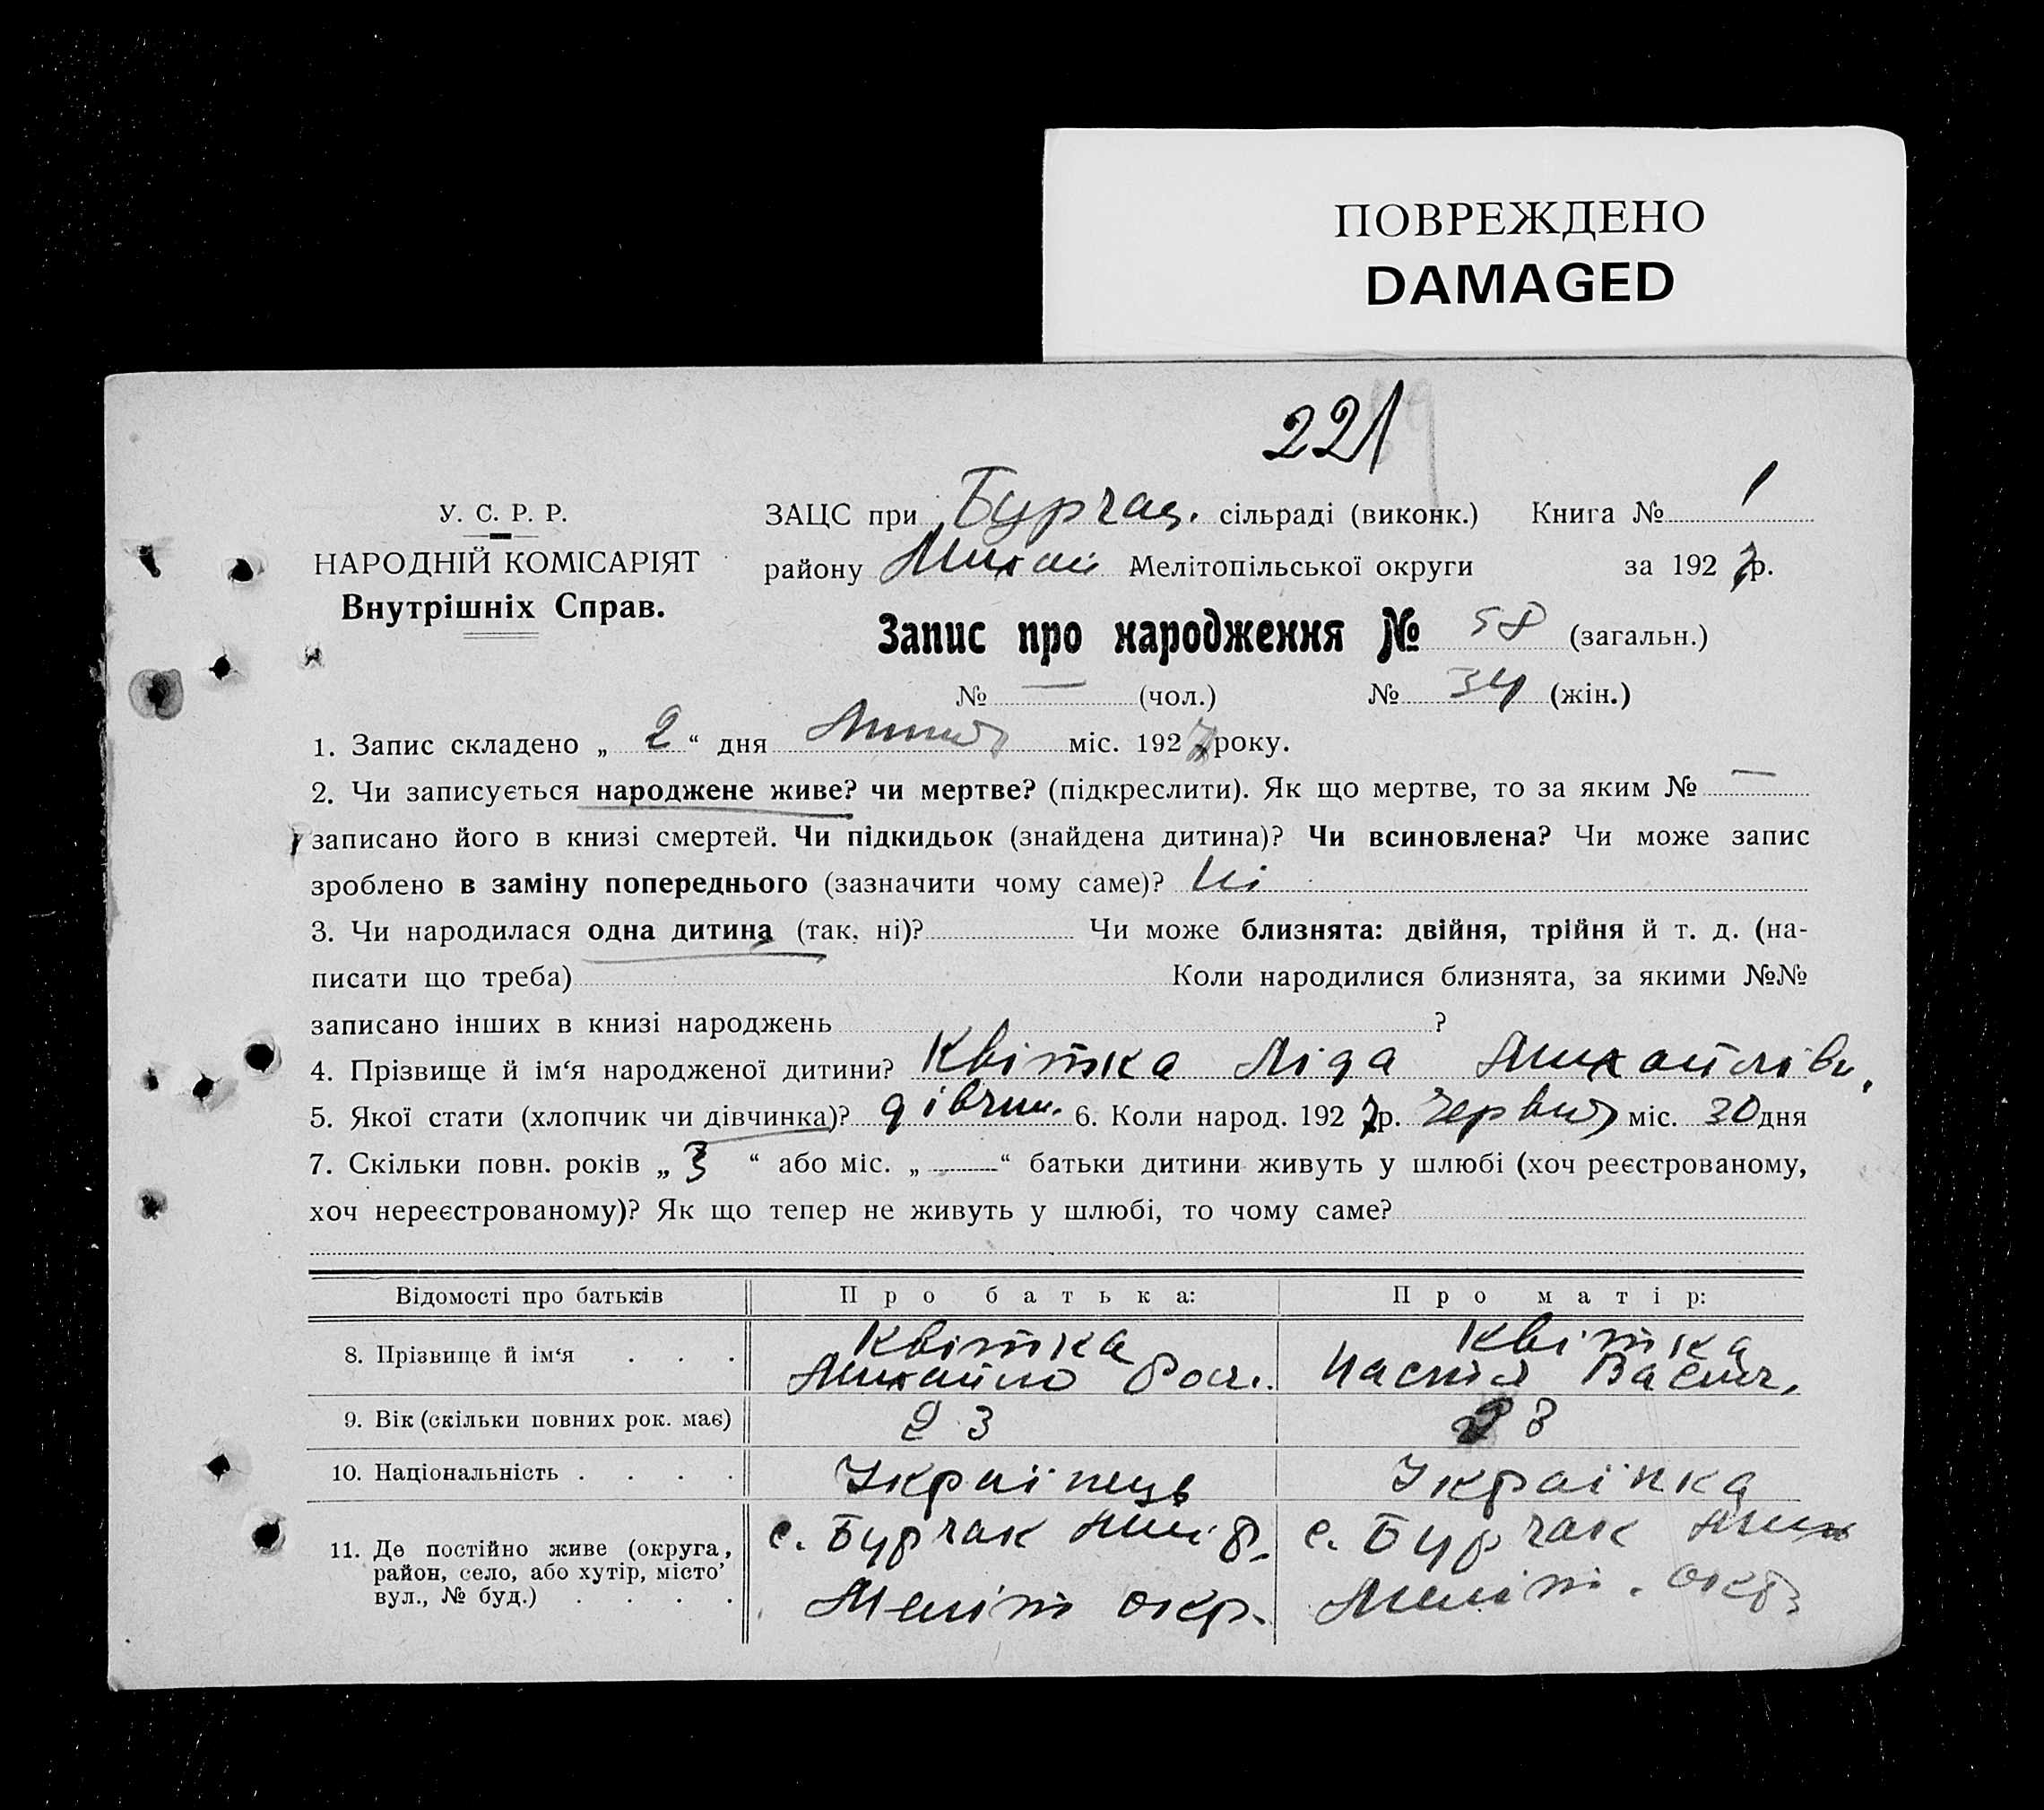 ПОВРЕЖДЕНО
DAMAGED
221
У. С. Р. Р.
НАРОДНІЙ КОМІСАРІЯТ
Внутрішніх Справ.
ЗАЦС при Бурчац. сільраді (виконк.) Книга № 1
району Михай Мелітопільської округи за 1927 р.
Запис про народження № 58 (загальн.)
№ — (чол.) № 34 (жін.)
1. Запис складено „ 2 “ дня Липня міс. 1927 року.
2. Чи записується народжене живе? чи мертве? (підкреслити). Як що мертве, то за яким № —
записано його в книзі смертей. Чи підкидьок (знайдена дитина)? Чи всиновлена? Чи може запис
зроблено в заміну попереднього (зазначити чому саме)? Ні
3. Чи народилася одна дитина (так, ні)? Чи може близнята: двійня, трійня й т. д. (на-
писати що треба) Коли народилися близнята, за якими №№
записано інших в книзі народжень ?
4. Прізвище й ім‘я народженої дитини? Квітка Ліда Михайлівн.
5. Якої стати (хлопчик чи дівчинка)? дівчин. 6. Коли народ. 1927 р. Червня міс. 30 дня
7. Скільки повн. років „ 3 “ або міс. „ — “ батьки дитини живуть у шлюбі (хоч реєстрованому,
хоч нереєстрованому)? Як що тепер не живуть у шлюбі, то чому саме?
Відомості про батьків Про батька: Про матір:
8. Прізвище й ім‘я . . . Квітка Михайло Квітка Настя Васил.
9. Вік (скільки повних рок. має) 23 23
10. Національність . . . . Українець Українка
11. Де постійно живе (округа, с. Бурчак с. Бурчак Мих
район, село, або хутір, місто’
вул., № буд.) . . . . Меліт окр. Меліт. окр